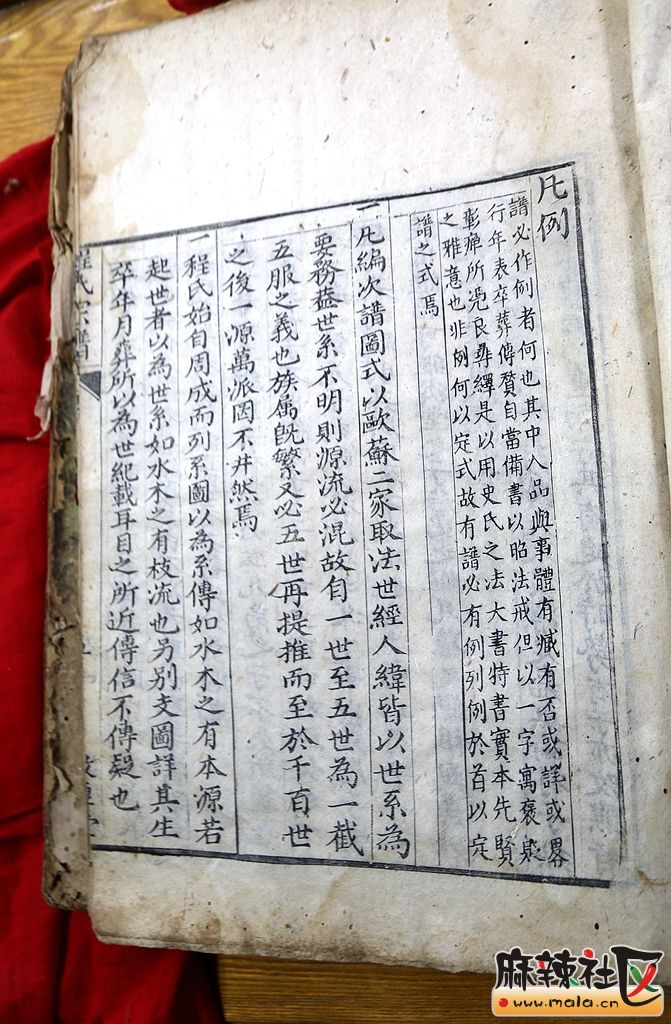 凡例
譜必作例者何也其中人品與事體有臧有否或詳或畧
行年表卒葬傳贅自當備書以昭法戒但以一字寓褒貶
彰癉所憑良尋繹是以用史氏之法大書特書實本先賢
之雅意也非例何以定式故有譜必有例列例於首以定
譜之式焉
一凡編次譜圖式以歐蘇二家取法世經人緯皆以世系為
要務葢世系不明則源流必混故自一世至五世為一截
五服之義也族属旣繁又必五世再提推而至於千百世
之後一源萬派罔不井然焉
一程氏始自周成而列系圖以為系傳如水木之有本源若
起世者以為世系如水木之有枝流也另别支圖詳其生
卒年月葬所以為世紀載耳目之所近傳信不傳疑也
程氏宗譜
麻辣社区
www.mala.cn